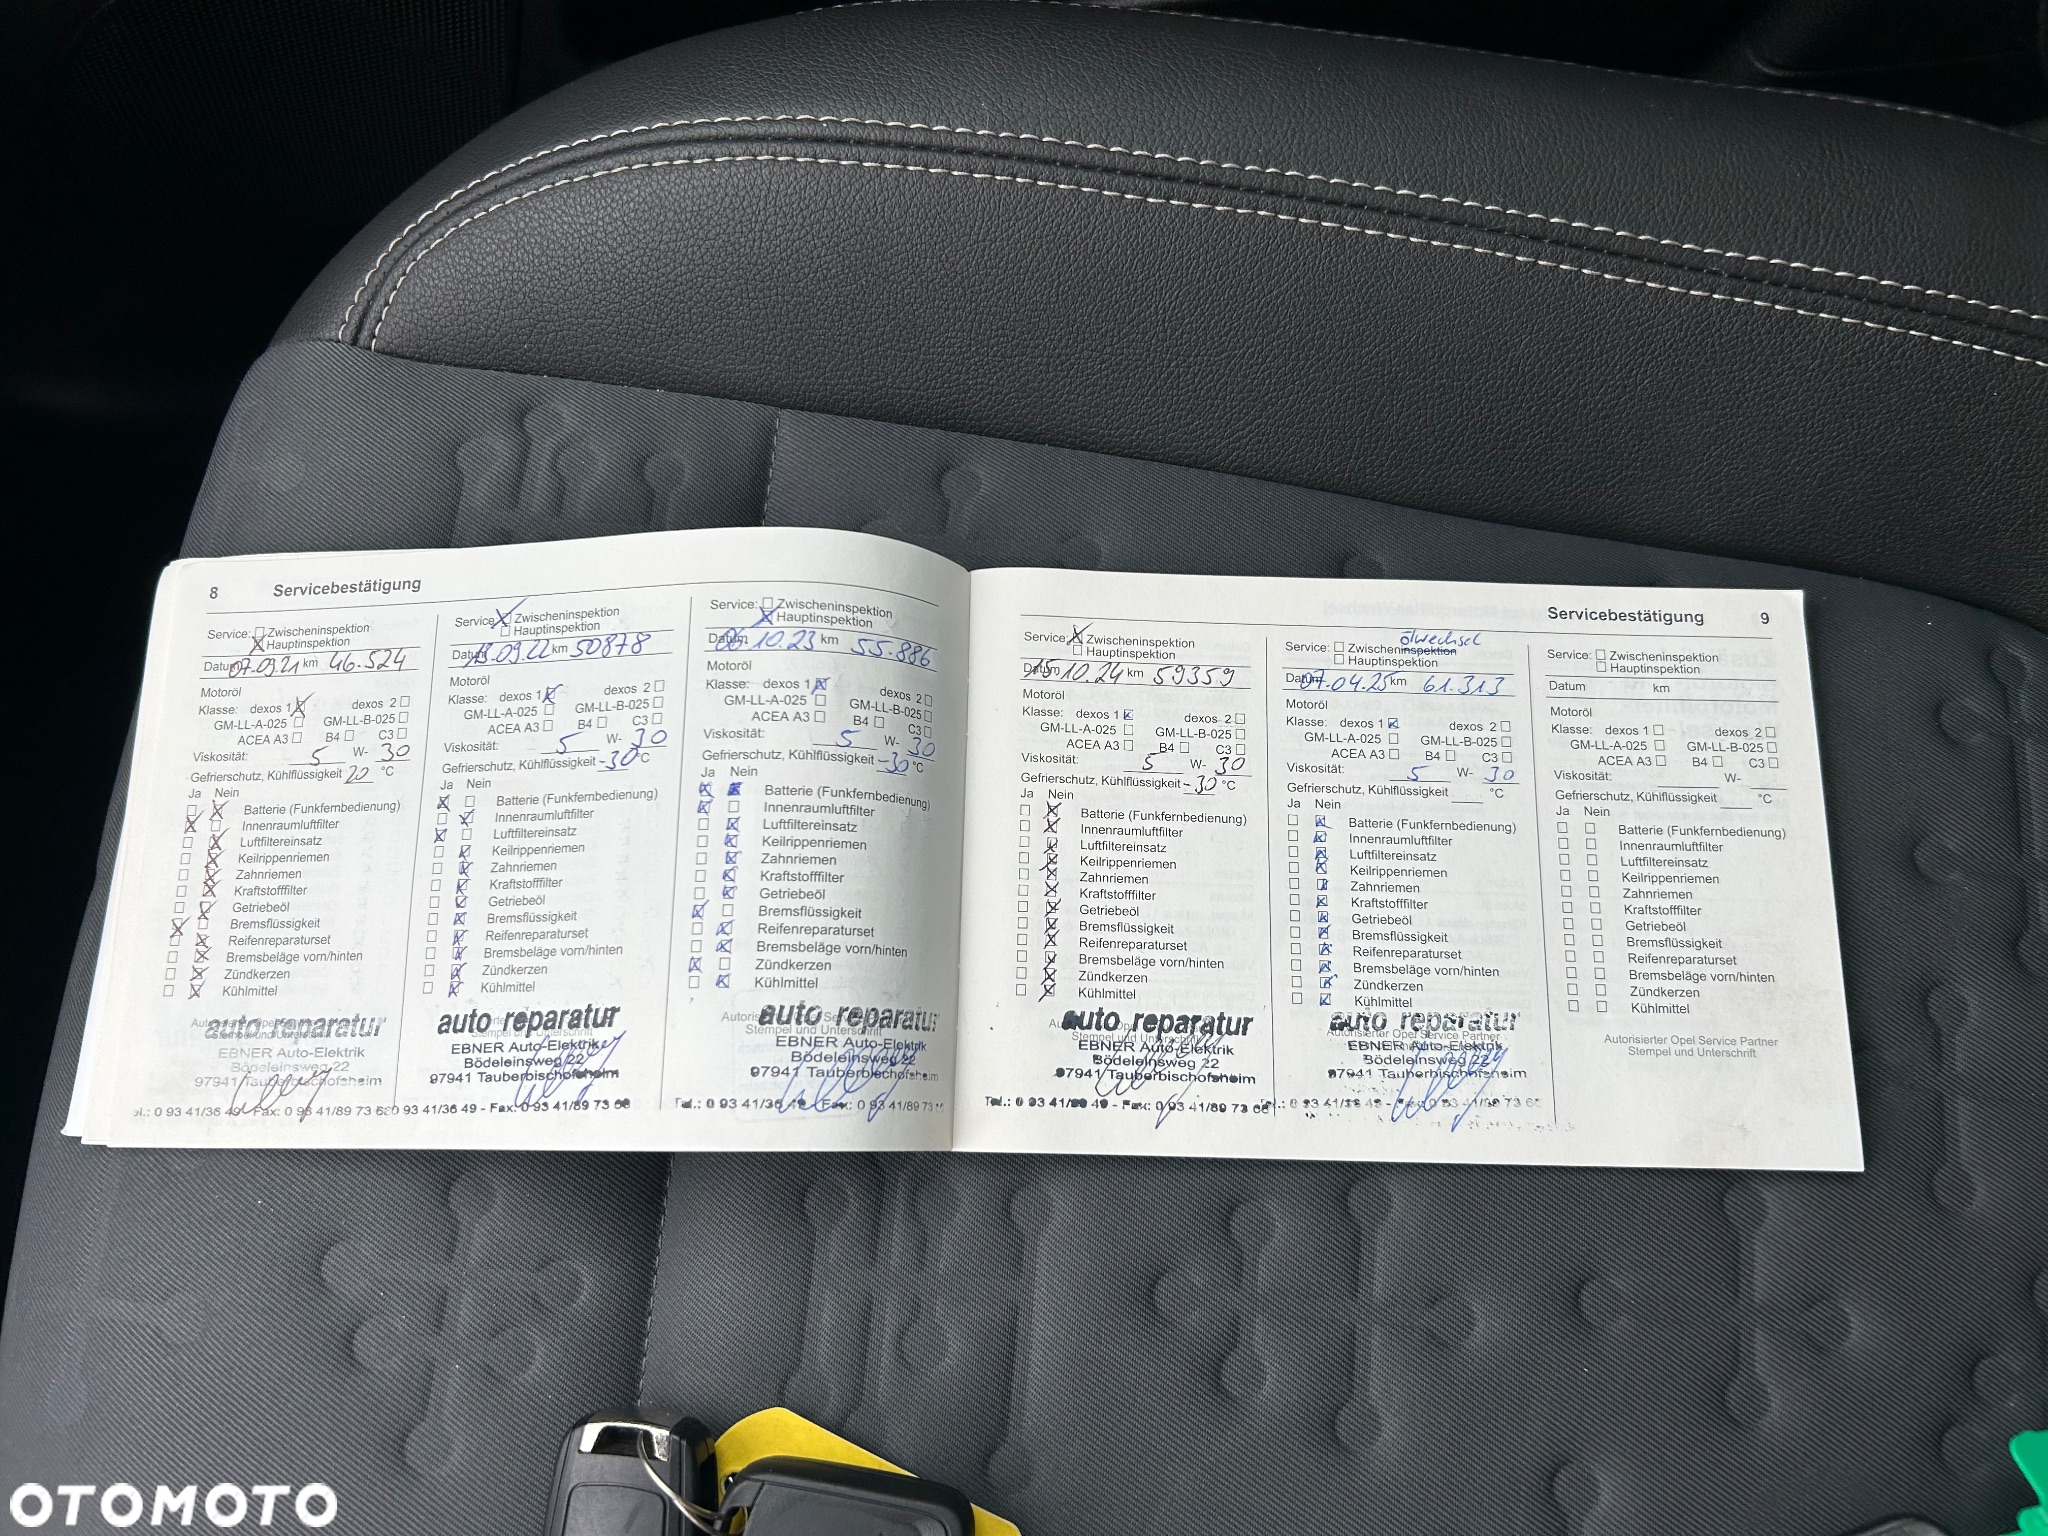 8 Servicebestätigung
Service: Zwischeninspektion
Hauptinspektion
Datum 07.09.21 km 46.524
Motoröl
Klasse: dexos 1 dexos 2
GM-LL-A-025 GM-LL-B-025
ACEA A3 B4 C3
Viskosität: 5 W- 30
Gefrierschutz, Kühlflüssigkeit 20 °C
Ja Nein
Batterie (Funkfernbedienung)
Innenraumluftfilter
Luftfiltereinsatz
Keilrippenriemen
Zahnriemen
Kraftstofffilter
Getriebeöl
Bremsflüssigkeit
Reifenreparaturset
Bremsbeläge vorn/hinten
Zündkerzen
Kühlmittel
auto reparatur
EBNER Auto-Elektrik
Bödeleinsweg 22
97941 Tauberbischofsheim
Service: Zwischeninspektion
Hauptinspektion
Datum 13.09.22 km 50878
Motoröl
Klasse: dexos 1 dexos 2
GM-LL-A-025 GM-LL-B-025
ACEA A3 B4 C3
Viskosität: 5 W- 30
Gefrierschutz, Kühlflüssigkeit -30 °C
Ja Nein
Batterie (Funkfernbedienung)
Innenraumluftfilter
Luftfiltereinsatz
Keilrippenriemen
Zahnriemen
Kraftstofffilter
Getriebeöl
Bremsflüssigkeit
Reifenreparaturset
Bremsbeläge vorn/hinten
Zündkerzen
Kühlmittel
auto reparatur
EBNER Auto-Elektrik
Bödeleinsweg 22
97941 Tauberbischofsheim
Service: Zwischeninspektion
Hauptinspektion
Datum 06.10.23 km 55.886
Motoröl
Klasse: dexos 1 dexos 2
GM-LL-A-025 GM-LL-B-025
ACEA A3 B4 C3
Viskosität: 5 W- 30
Gefrierschutz, Kühlflüssigkeit -30 °C
Ja Nein
Batterie (Funkfernbedienung)
Innenraumluftfilter
Luftfiltereinsatz
Keilrippenriemen
Zahnriemen
Kraftstofffilter
Getriebeöl
Bremsflüssigkeit
Reifenreparaturset
Bremsbeläge vorn/hinten
Zündkerzen
Kühlmittel
auto reparatur
Stempel und Unterschrift
EBNER Auto-Elektrik
Bödeleinsweg 22
97941 Tauberbischofsheim
Servicebestätigung 9
Service: Zwischeninspektion
Hauptinspektion
Datum 15.10.24 km 59359
Motoröl
Klasse: dexos 1 dexos 2
GM-LL-A-025 GM-LL-B-025
ACEA A3 B4 C3
Viskosität: 5 W- 30
Gefrierschutz, Kühlflüssigkeit -30 °C
Ja Nein
Batterie (Funkfernbedienung)
Innenraumluftfilter
Luftfiltereinsatz
Keilrippenriemen
Zahnriemen
Kraftstofffilter
Getriebeöl
Bremsflüssigkeit
Reifenreparaturset
Bremsbeläge vorn/hinten
Zündkerzen
Kühlmittel
auto reparatur
EBNER Auto-Elektrik
Bödeleinsweg 22
97941 Tauberbischofsheim
Ölwechsel
Service: Zwischeninspektion
Hauptinspektion
Datum 07.04.25 km 61.313
Motoröl
Klasse: dexos 1 dexos 2
GM-LL-A-025 GM-LL-B-025
ACEA A3 B4 C3
Viskosität: 5 W- 30
Gefrierschutz, Kühlflüssigkeit °C
Ja Nein
Batterie (Funkfernbedienung)
Innenraumluftfilter
Luftfiltereinsatz
Keilrippenriemen
Zahnriemen
Kraftstofffilter
Getriebeöl
Bremsflüssigkeit
Reifenreparaturset
Bremsbeläge vorn/hinten
Zündkerzen
Kühlmittel
auto reparatur
Autorisierter Opel Service Partner
EBNER Auto-Elektrik
Bödeleinsweg 22
97941 Tauberbischofsheim
Service: Zwischeninspektion
Hauptinspektion
Datum km
Motoröl
Klasse: dexos 1 dexos 2
GM-LL-A-025 GM-LL-B-025
ACEA A3 B4 C3
Viskosität: W-
Gefrierschutz, Kühlflüssigkeit °C
Ja Nein
Batterie (Funkfernbedienung)
Innenraumluftfilter
Luftfiltereinsatz
Keilrippenriemen
Zahnriemen
Kraftstofffilter
Getriebeöl
Bremsflüssigkeit
Reifenreparaturset
Bremsbeläge vorn/hinten
Zündkerzen
Kühlmittel
Autorisierter Opel Service Partner
Stempel und Unterschrift
OTOMOTO